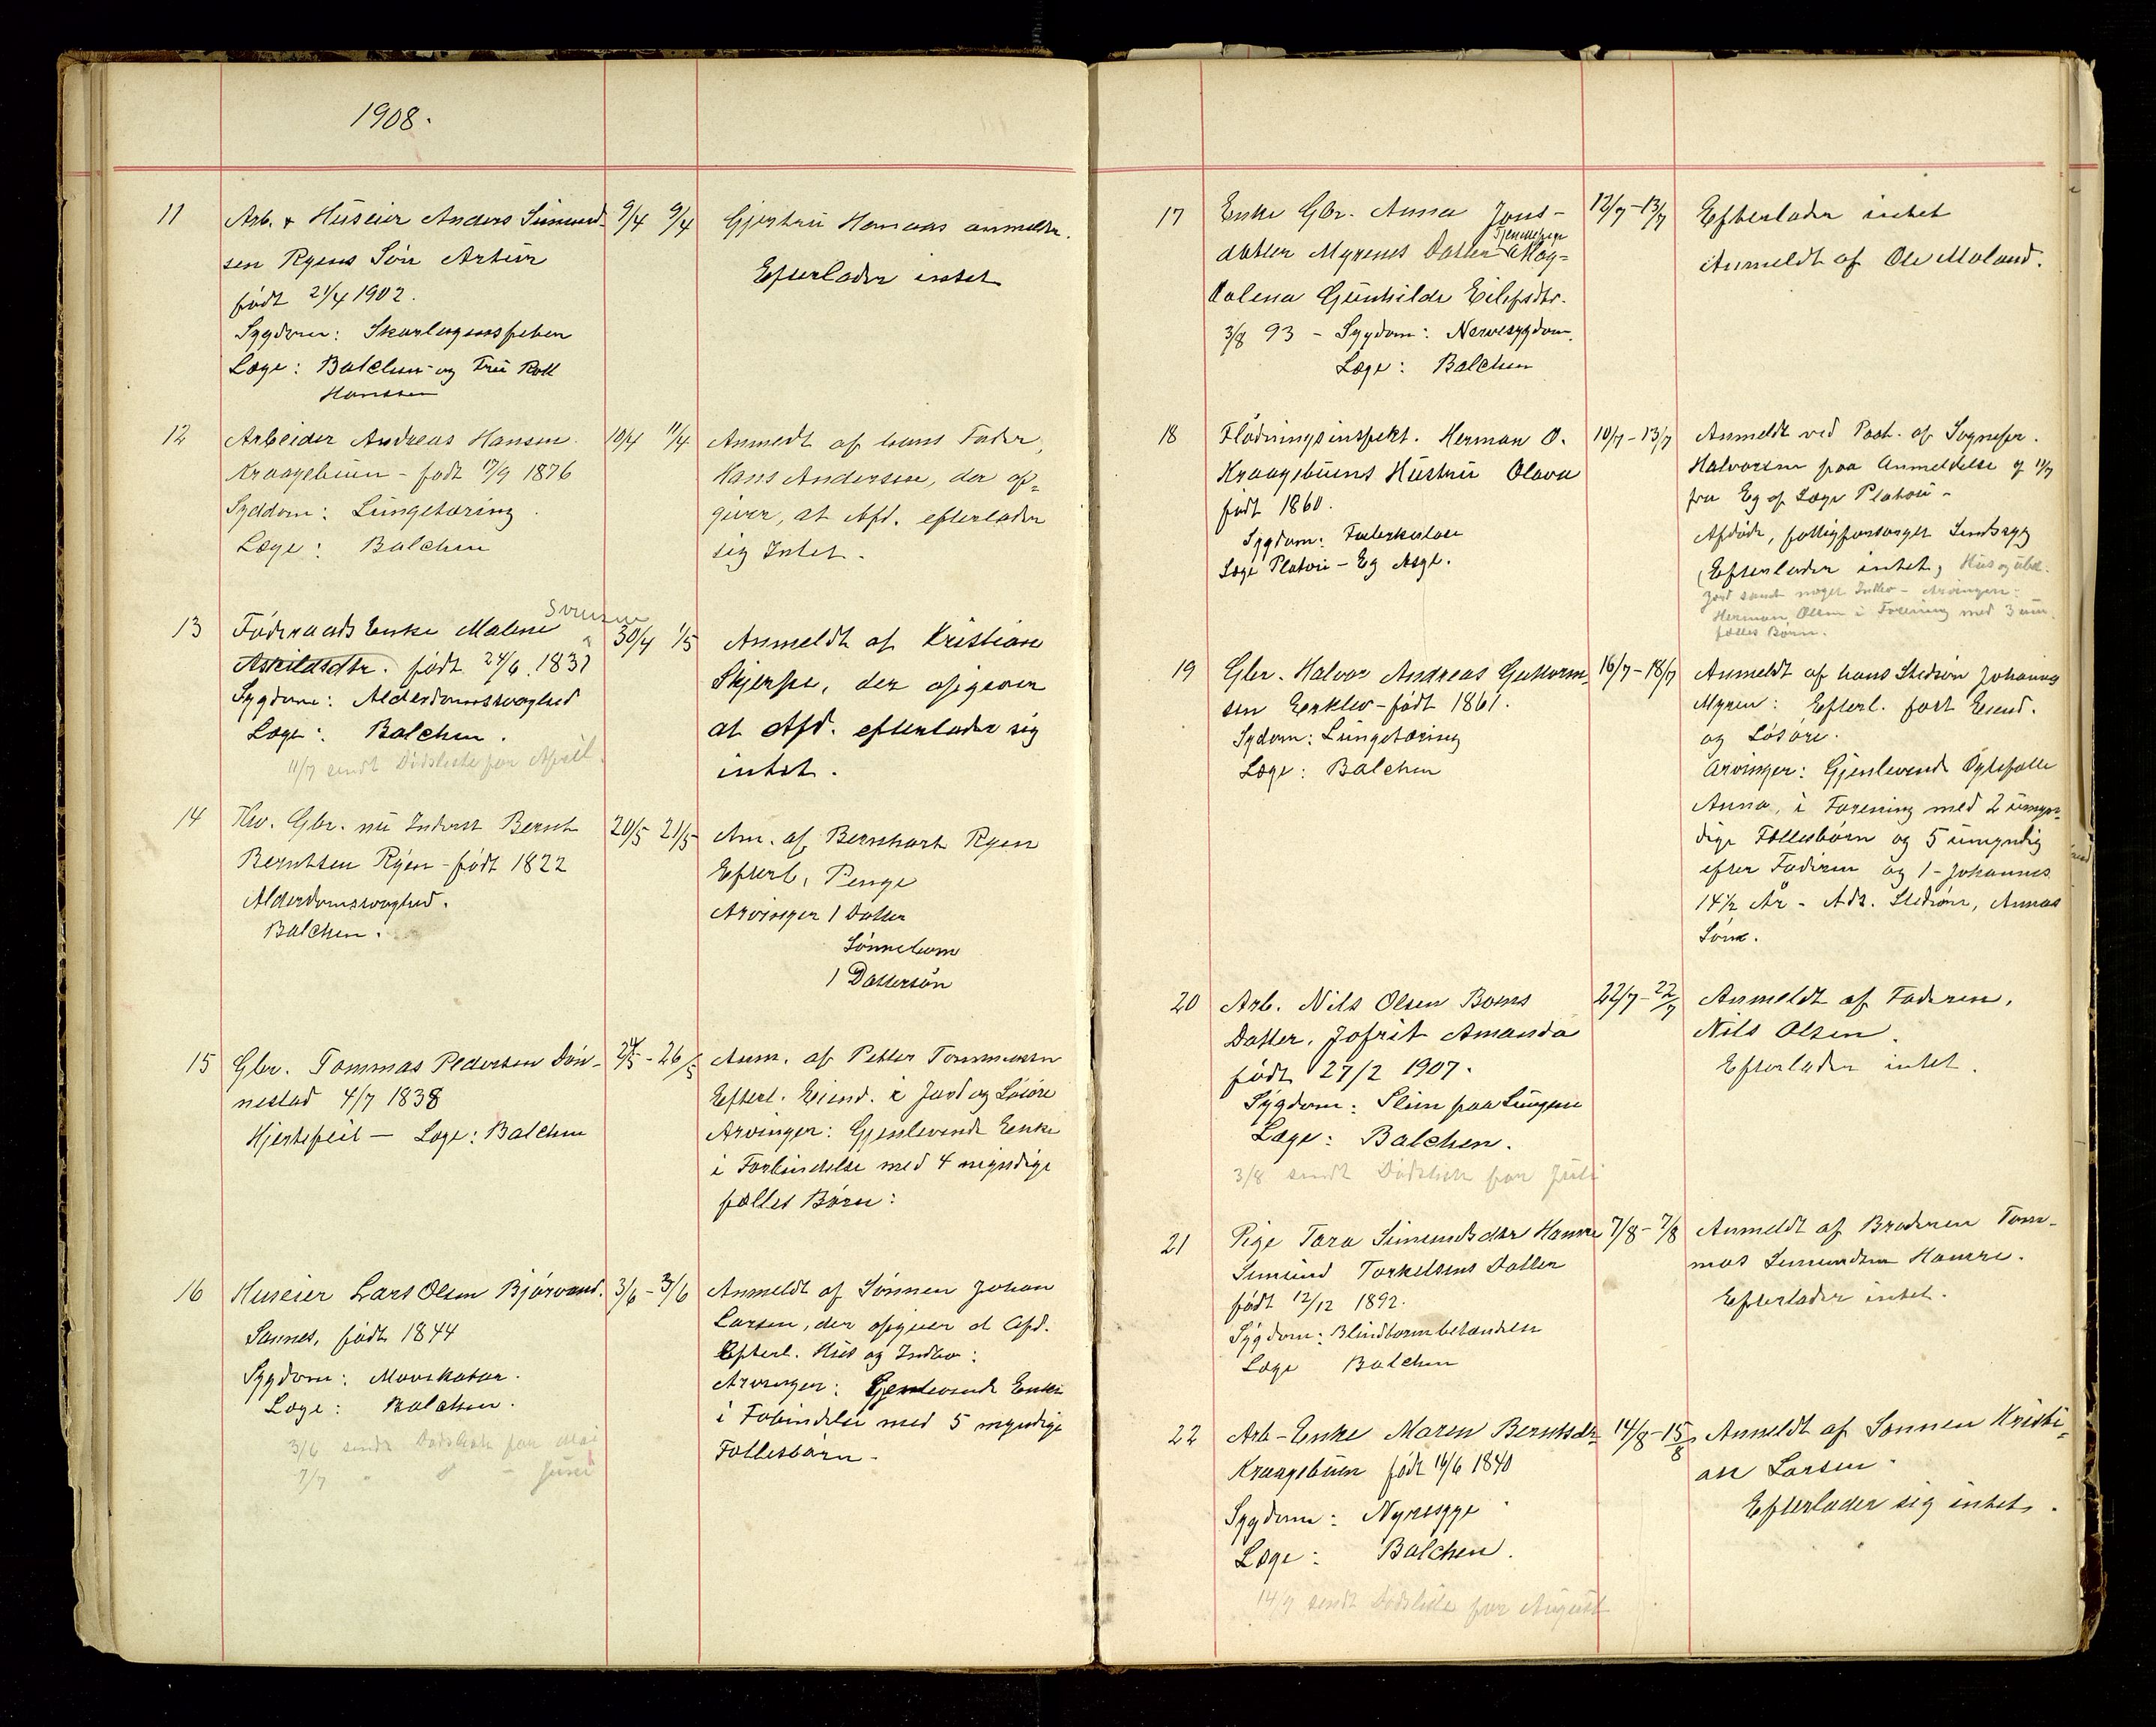 1908.
11
Arb. & Huseier Anders Simund-
sen Ryens Søn Artur
født 21/4 1902.
Sygdom: Skarlagensfeber
Læge: Balchen og Fru Roll
Hanssen
9/4 9/4
Gjertru Hamaas anmelder.
Efterlader intet
12
Arbeider Andreas Hansen
Kraagebuen - født 17/9 1876
Syddom: Lungetæring.
Læge: Balchen
10/4 11/4
Anmedt af hans Fader,
Hans Andersen, der op=
giver, at Afd. efterlader
sig Intet.
13
Føderaads Enke Malene
Askildsdtr. født 24/6 1837
Sygdom: Alderdomssvaghed
Læge: Balchen.
11/7 sendt Dødsliste for April.
30/4 1/5
Anmeldt af Kristian
Skjerpe, der opgiver
at Afd. efterlader sig
intet.
14
Fhv. Gbr. nu Inderst Bernt
Berntsen Ryen - født 1822
Alderdomssvaghed.
Balchen.
20/5 21/5
Am. af Bernhart Ryen
Efterl. Penge
Arvinger 1 Datter
Sønneborn
1 Dattersøn
15
Gbr. Tommas Pedersen Døn-
nestad 4/7 1838
Hjertefeil - Læge: Balchen
24/5 - 26/5
Anm. af Petter Tommassen
Efterl. Eiend. i Jord og Løsøre
Arvinger: Gjenlevende Enke
i Forbindelse med 4 myndige
fælles Børn:
16
Huseier Lars Olsen Bjørvand.
Sannes, født 1844
Sygdom: Mavekatar.
Læge: Balchen.
3/6 sendt Dødsliste for Mai
7/7 " " - Juni
3/6 - 3/6
Anmeldt af Sønnen Johan
Larsen, der opgiver at Afd.
Efterl. Hus og Indbo:
Arvinger: Gjenlevende Enke
i Fobindelse med 5 myndige
Fællesbørn -
17
Enke Gbr. Anna Jons-
datter Myrenes Datter Tjenestepige Mag=
dalena Gunhilde Eilefsdtr.
3/8 93 - Sygdom: Nervesygdom.
Læge: Balchen
12/7 - 13/7
Efterlader intet
Anmeldt af Ole Moland.
18
Flødningsinspekt. Herman O.
Kraagebuens Hustru Olava
født 1860.
Sygdom: Tuberkulose
Læge Platou - Eg Asyl.
10/7 - 13/7
Anmeldt ved Post. af Sognepr.
Halvorsen paa Anmeldelse af 11/7
fra Eg af Læge Platou -
Afdøde, fattigforsørget Sindssyg
(Efterlader intet, Hus og ubet.
Jord samt noget Indbo - Arvinger:
Herman Olsen i Forening med 3 um.
fælles Børn.
19
Gbr. Halvor Andreas Guttorm-
sen Eerklev - født 1861.
Sydom: Lungetæring
Læge: Balchen
16/7 - 18/7
Anmeldt af hans Stedsøn Johannes
Myren: Efterl. fast Eiend.
og Løsøre.
Arvinger: Gjenlevende Ægtefælle
Anna, i Forening med 2 umyn-
dige Fællesbørn og 5 umyndig
efter Faderen og 1 - Johannes
14 1/2 År - Adr. Stedsøn, Annas
Søn.
20
Arb. Nils Olsen Boens
Datter, Jofrit Amanda
født 27/2 1907.
Sygdom: Slim paa Lungene
Læge: Balchen.
3/8 sendt Dødsliste for Juli
22/7 - 22/7
Anmeldt af Faderen,
Nils Olsen.
Efterlader intet.
21
Pige Tara Simundsdtr Hamre
Simund Torkelsens Datter
født 12/12 1892.
Sygdom: Blindtarmbetændelse
Læge Balchen
7/8 - 7/8
Anmeldt af Broderen Tom-
mas Simundsen Hamre.
Efterlader intet.
22
Arb-Enke Maren Berntsdtr
Kraagebuen født 16/6 1840
Sygdom: Nyresyge
Læge: Balchen.
14/9 sendt Dødsliste for August
14/8 - 15/8
Anmeldt af Sønnen Kristi=
an Larsen.
Efterlader sig intet.